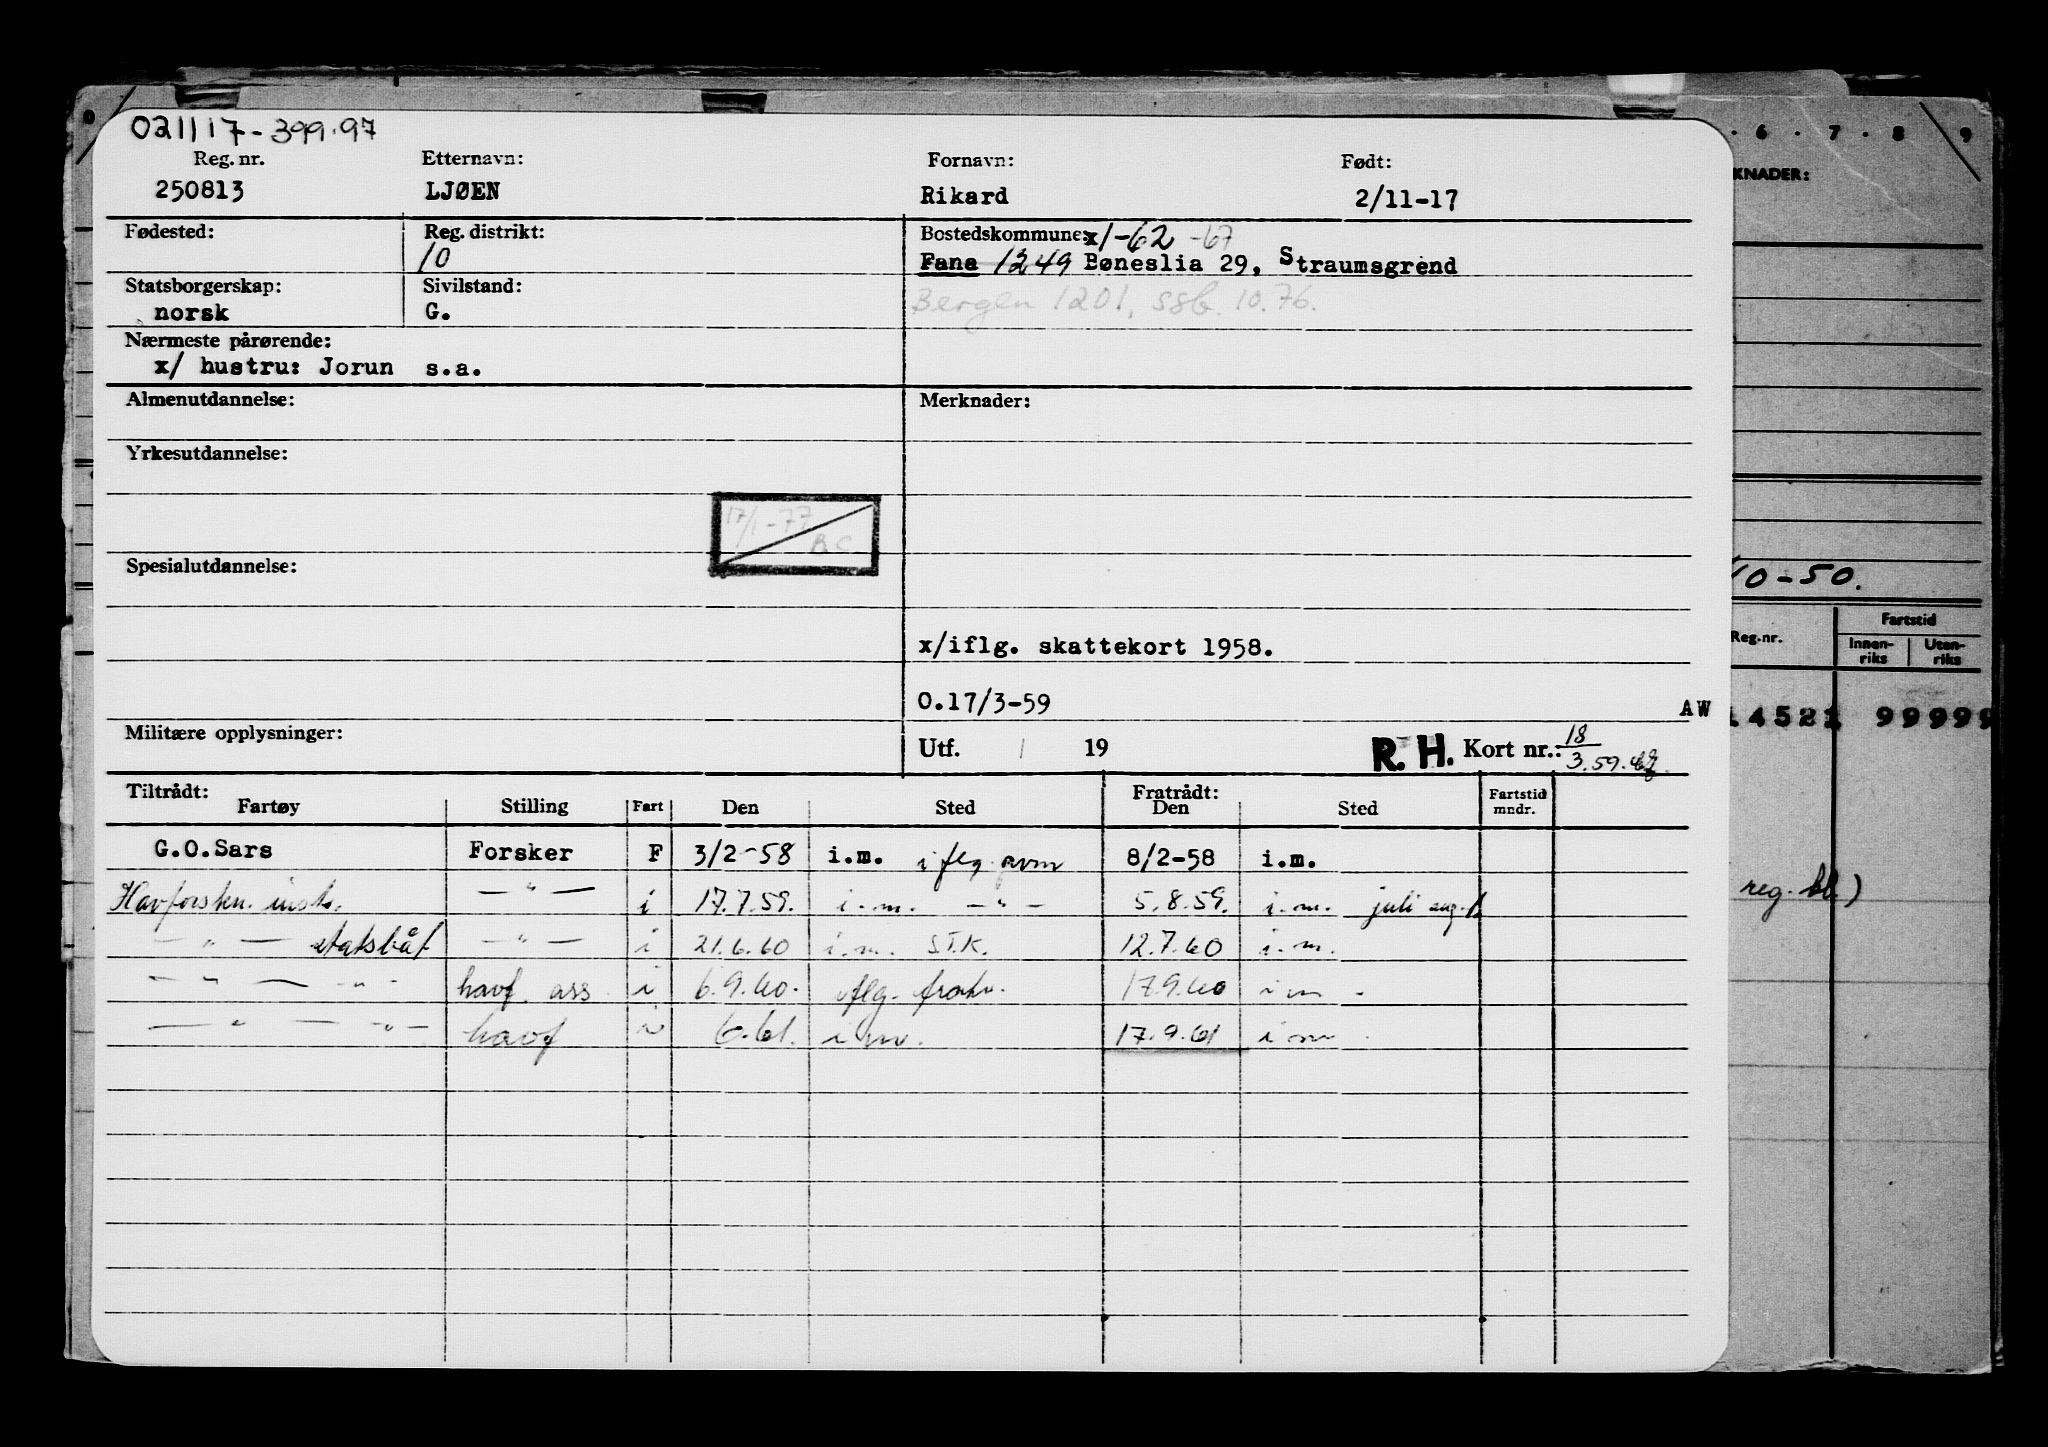 021117-399.97
Reg. nr. Etternavn: Fornavn: Født:
250813 LJØEN Rikard 2/11-17
Fødested: Reg. distrikt: Bostedskommune: x/-62 -67
10 Fana 1249 Bøneslia 29, Straumsgrend
Statsborgerskap: Sivilstand:
norsk G. Bergen 1201, ssb. 10.76.
Nærmeste pårørende:
x/ hustru: Jorun s.a.
Almenutdannelse: Merknader:
Yrkesutdannelse:
17/1-77
BC
Spesialutdannelse:
x/iflg. skattekort 1958.
O.17/3-59 AW
Militære opplysninger: Utf. / 19 R. H. Kort nr.: 18/3.59.
Tiltrådt: Fratrådt: Fartstid
Fartøy Stilling Fart Den Sted Den Sted mndr.
G.O.Sars Forsker F 3/2-58 i.m. iflg. 8/2-58 i.m.
Havforskn. inst. — " — i 17.7.59. i.m. — " — 5.8.59. i.m. juli aug.
— " — statsbåt — " — i 21.6.60 i.m. ST.K. 12.7.60 i.m.
— " — - " - havf. ass i 6.9.60. iflg. 17.9.60 i m -
— " — - " - havf i 6.61. i m. 17.9.61 i m
6 . 7 . 8 9
KNADER:
/10-50.
Fartstid
Reg.nr. Innen-riks Uten-riks
14521 99999
reg. bl.)